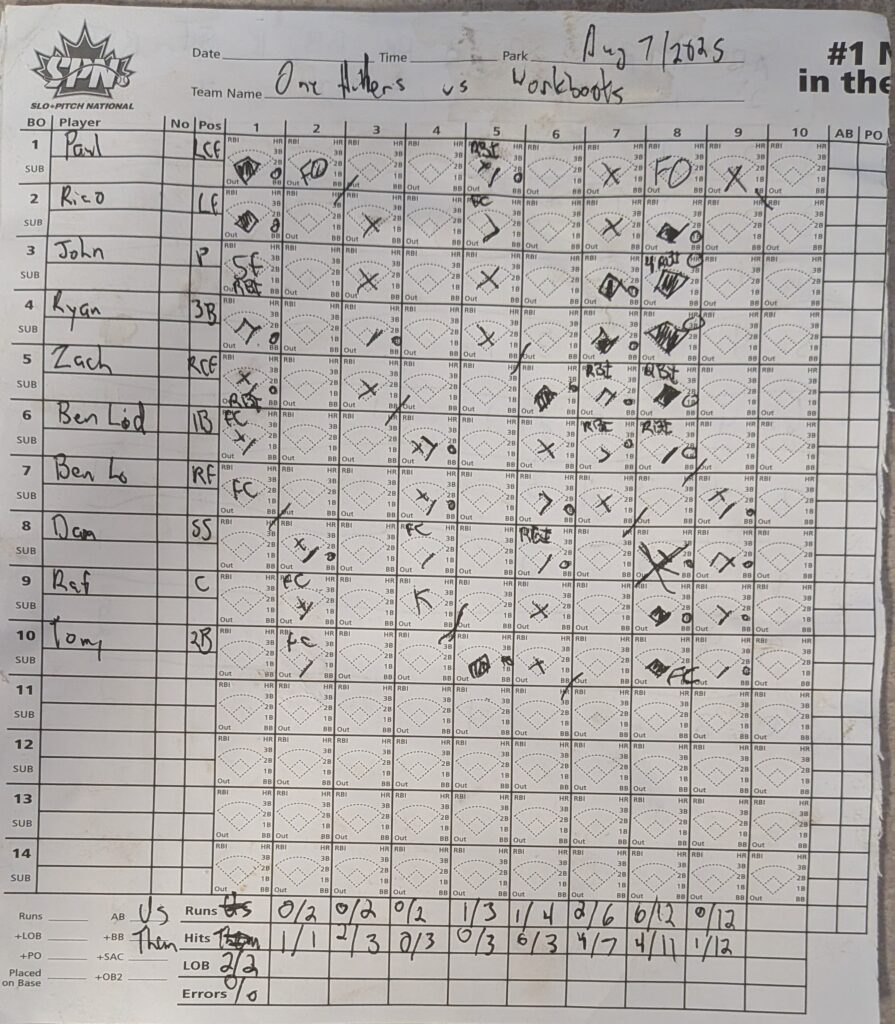 SPN
SLO•PITCH NATIONAL
Date Time Park Aug 7/2025
#1
in the
Team Name One Hitters vs Workboots
BO Player No Pos 1 2 3 4 5 6 7 8 9 10 AB PO
1 Paul LCF FO RBI X X FO X
SUB
2 Rico LF X FC X
SUB
3 John P SF RBI X X 4 RBI
SUB
4 Ryan 3B X
SUB
5 Zach RCF X RBI X RBI RBI
SUB
6 Ben Lod 1B FC X RBI RBI
SUB
7 Ben Lo RF FC X
SUB
8 Dam SS FC RBI X
SUB
9 Raf C FC K X
SUB
10 Tomy 2B FC X FC
SUB
11
SUB
12
SUB
13
SUB
14
SUB
Runs AB Us Runs 0/2 0/2 0/2 1/3 1/4 2/6 6/12 0/12
+LOB +BB Them Hits 1/1 2/3 0/3 0/3 6/3 4/7 4/11 1/12
+PO +SAC LOB 2/2
Placed on Base +OB2 Errors 0/0